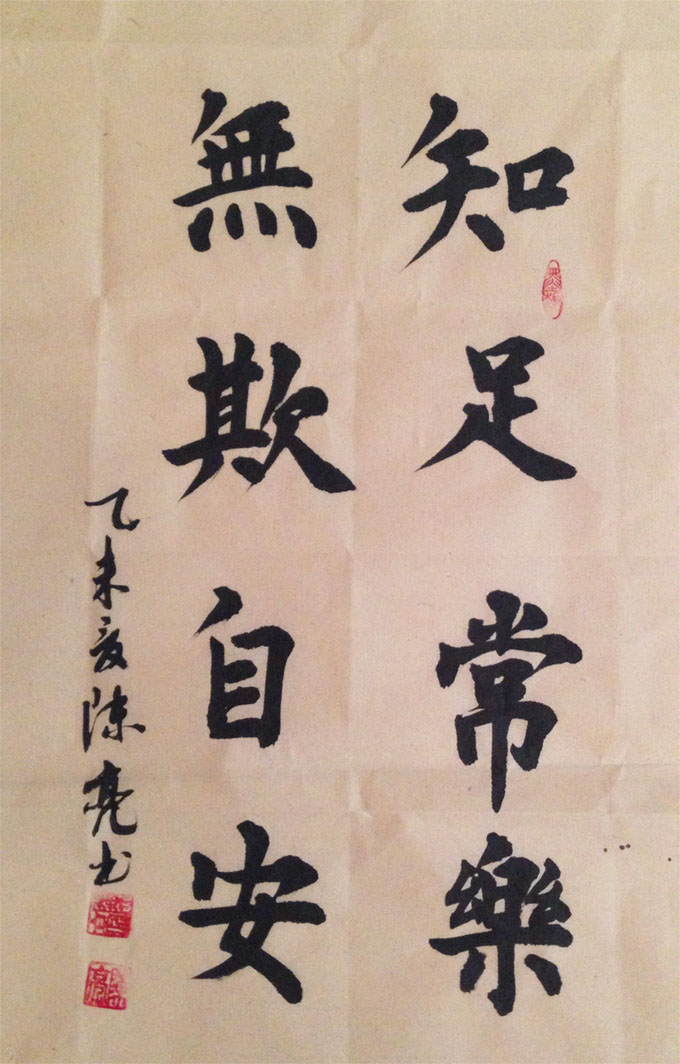 知足常樂
無欺自安
乙未夏陳亮书